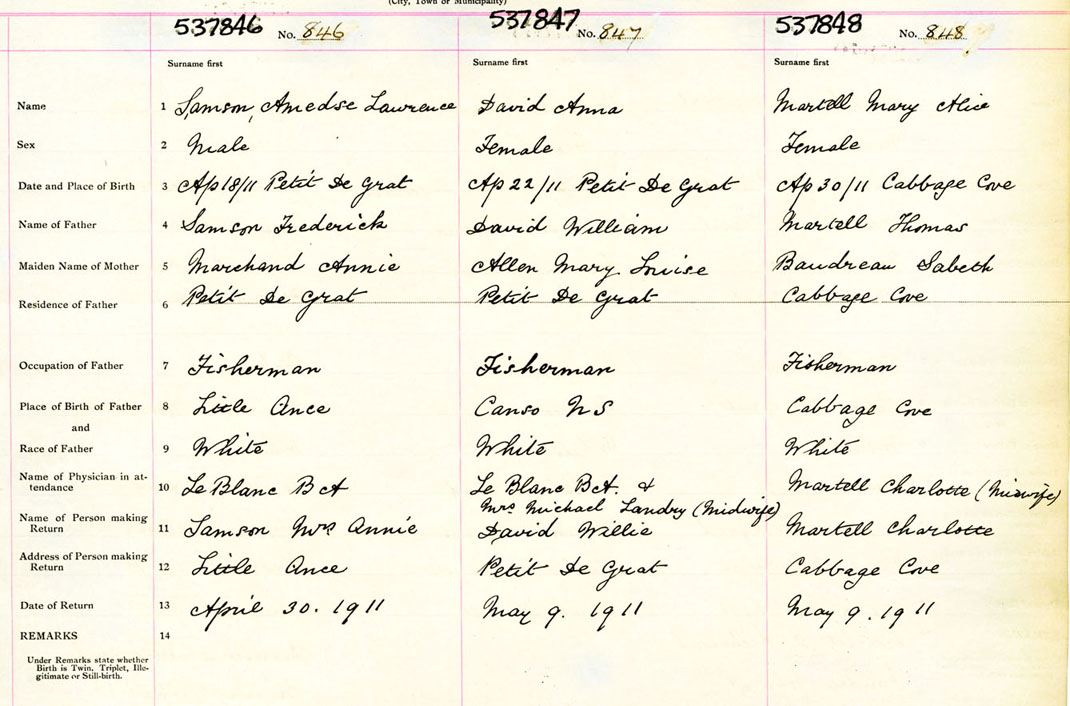 (City, Town or Municipality)
537846 No. 846 537847 No. 847 537848 No. 848
Surname first Surname first Surname first
Name 1 Samson, Amedse Lawrence David Anna Martell Mary Alice
Sex 2 Male Female Female
Date and Place of Birth 3 Ap 18/11 Petit De Grat Ap 22/11 Petit De Grat Ap 30/11 Cabbage Cove
Name of Father 4 Samson Frederick David William Martell Thomas
Maiden Name of Mother 5 Marchand Annie Allen Mary Louise Baudreau Sabeth
Residence of Father 6 Petit De Grat Petit De Grat Cabbage Cove
Occupation of Father 7 Fisherman Fisherman Fisherman
Place of Birth of Father 8 Little Ance Canso NS Cabbage Cove
and
Race of Father 9 White White White
Name of Physician in at-
tendance 10 Le Blanc BCA Le Blanc BCA. & Martell Charlotte (Midwife)
Mrs Michael Landry (Midwife)
Name of Person making
Return 11 Samson Mrs Annie David Willie Martell Charlotte
Address of Person making
Return 12 Little Ance Petit De Grat Cabbage Cove
Date of Return 13 April 30. 1911 May 9. 1911 May 9. 1911
REMARKS 14
Under Remarks state whether
Birth is Twin, Triplet, Ille-
gitimate or Still-birth.